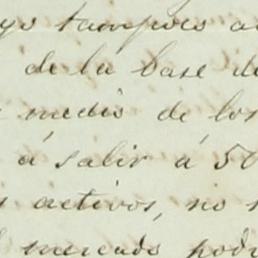 tampoco
de la base de
medio de los
á salir á 50
activos, no
mercado podr